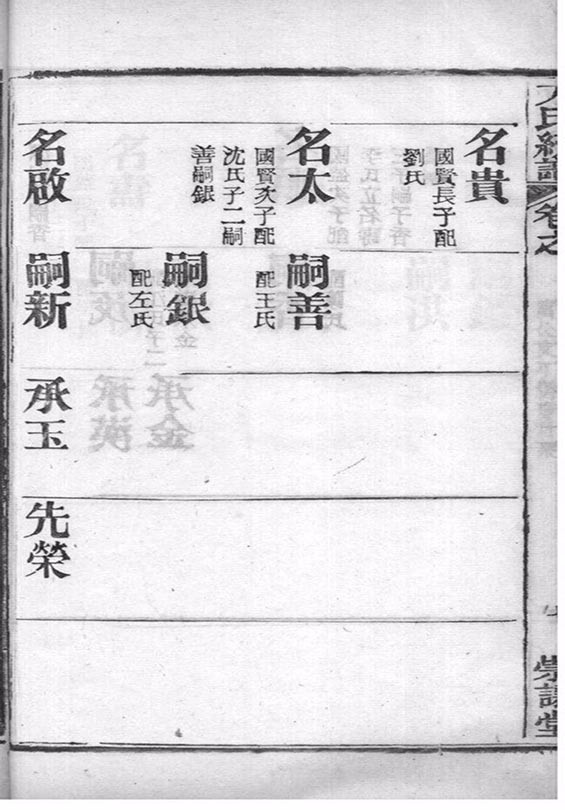 名貴
國賢長子配
劉氏
名太
國賢次子配
沈氏子二嗣
善嗣銀
嗣善
配王氏
嗣銀
配左氏
名啟
嗣新
承玉
先榮
氏
卷之
堂